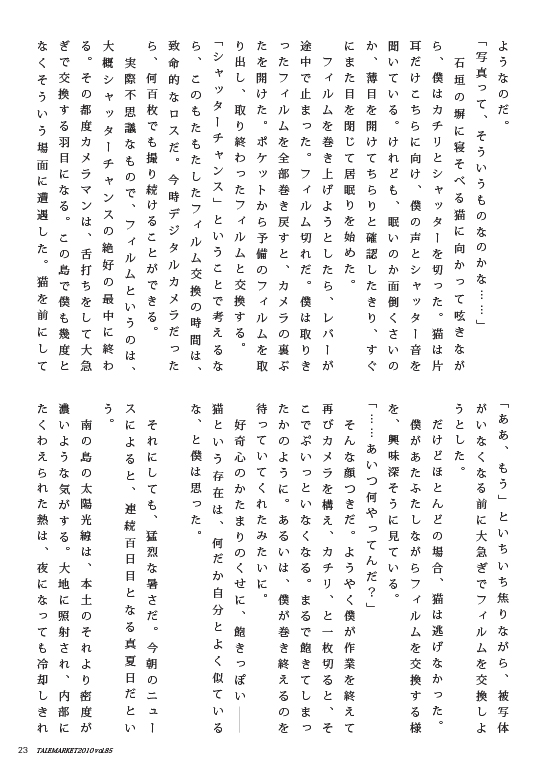 ようなのだ。
「写真って、そういうものなのかな……」
　石垣の塀に寝そべる猫に向かって呟きなが
ら、僕はカチリとシャッターを切った。猫は片
耳だけこちらに向け、僕の声とシャッター音を
聞いている。けれども、眠いのか面倒くさいの
か、薄目を開けてちらりと確認したきり、すぐ
にまた目を閉じて居眠りを始めた。
　フィルムを巻き上げようとしたら、レバーが
途中で止まった。フィルム切れだ。僕は取りき
ったフィルムを全部巻き戻すと、カメラの裏ぶ
たを開けた。ポケットから予備のフィルムを取
り出し、取り終わったフィルムと交換する。
「シャッターチャンス」ということで考えるな
ら、このもたもたしたフィルム交換の時間は、
致命的なロスだ。今時デジタルカメラだった
ら、何百枚でも撮り続けることができる。
　実際不思議なもので、フィルムというのは、
大概シャッターチャンスの絶好の最中に終わ
る。その都度カメラマンは、舌打ちをして大急
ぎで交換する羽目になる。この島で僕も幾度と
なくそういう場面に遭遇した。猫を前にして
「ああ、もう」といちいち焦りながら、被写体
がいなくなる前に大急ぎでフィルムを交換しよ
うとした。
　だけどほとんどの場合、猫は逃げなかった。
　僕があたふたしながらフィルムを交換する様
を、興味深そうに見ている。
「……あいつ何やってんだ？」
　そんな顔つきだ。ようやく僕が作業を終えて
再びカメラを構え、カチリ、と一枚切ると、そ
こでぷいっといなくなる。まるで飽きてしまっ
たかのように。あるいは、僕が巻き終えるのを
待っていてくれたみたいに。
　好奇心のかたまりのくせに、飽きっぽい――
猫という存在は、何だか自分とよく似ている
な、と僕は思った。
　それにしても、猛烈な暑さだ。今朝のニュー
スによると、連続百日目となる真夏日だとい
う。
　南の島の太陽光線は、本土のそれより密度が
濃いような気がする。大地に照射され、内部に
たくわえられた熱は、夜になっても冷却しきれ
23 TALEMARKET2010 vol.85